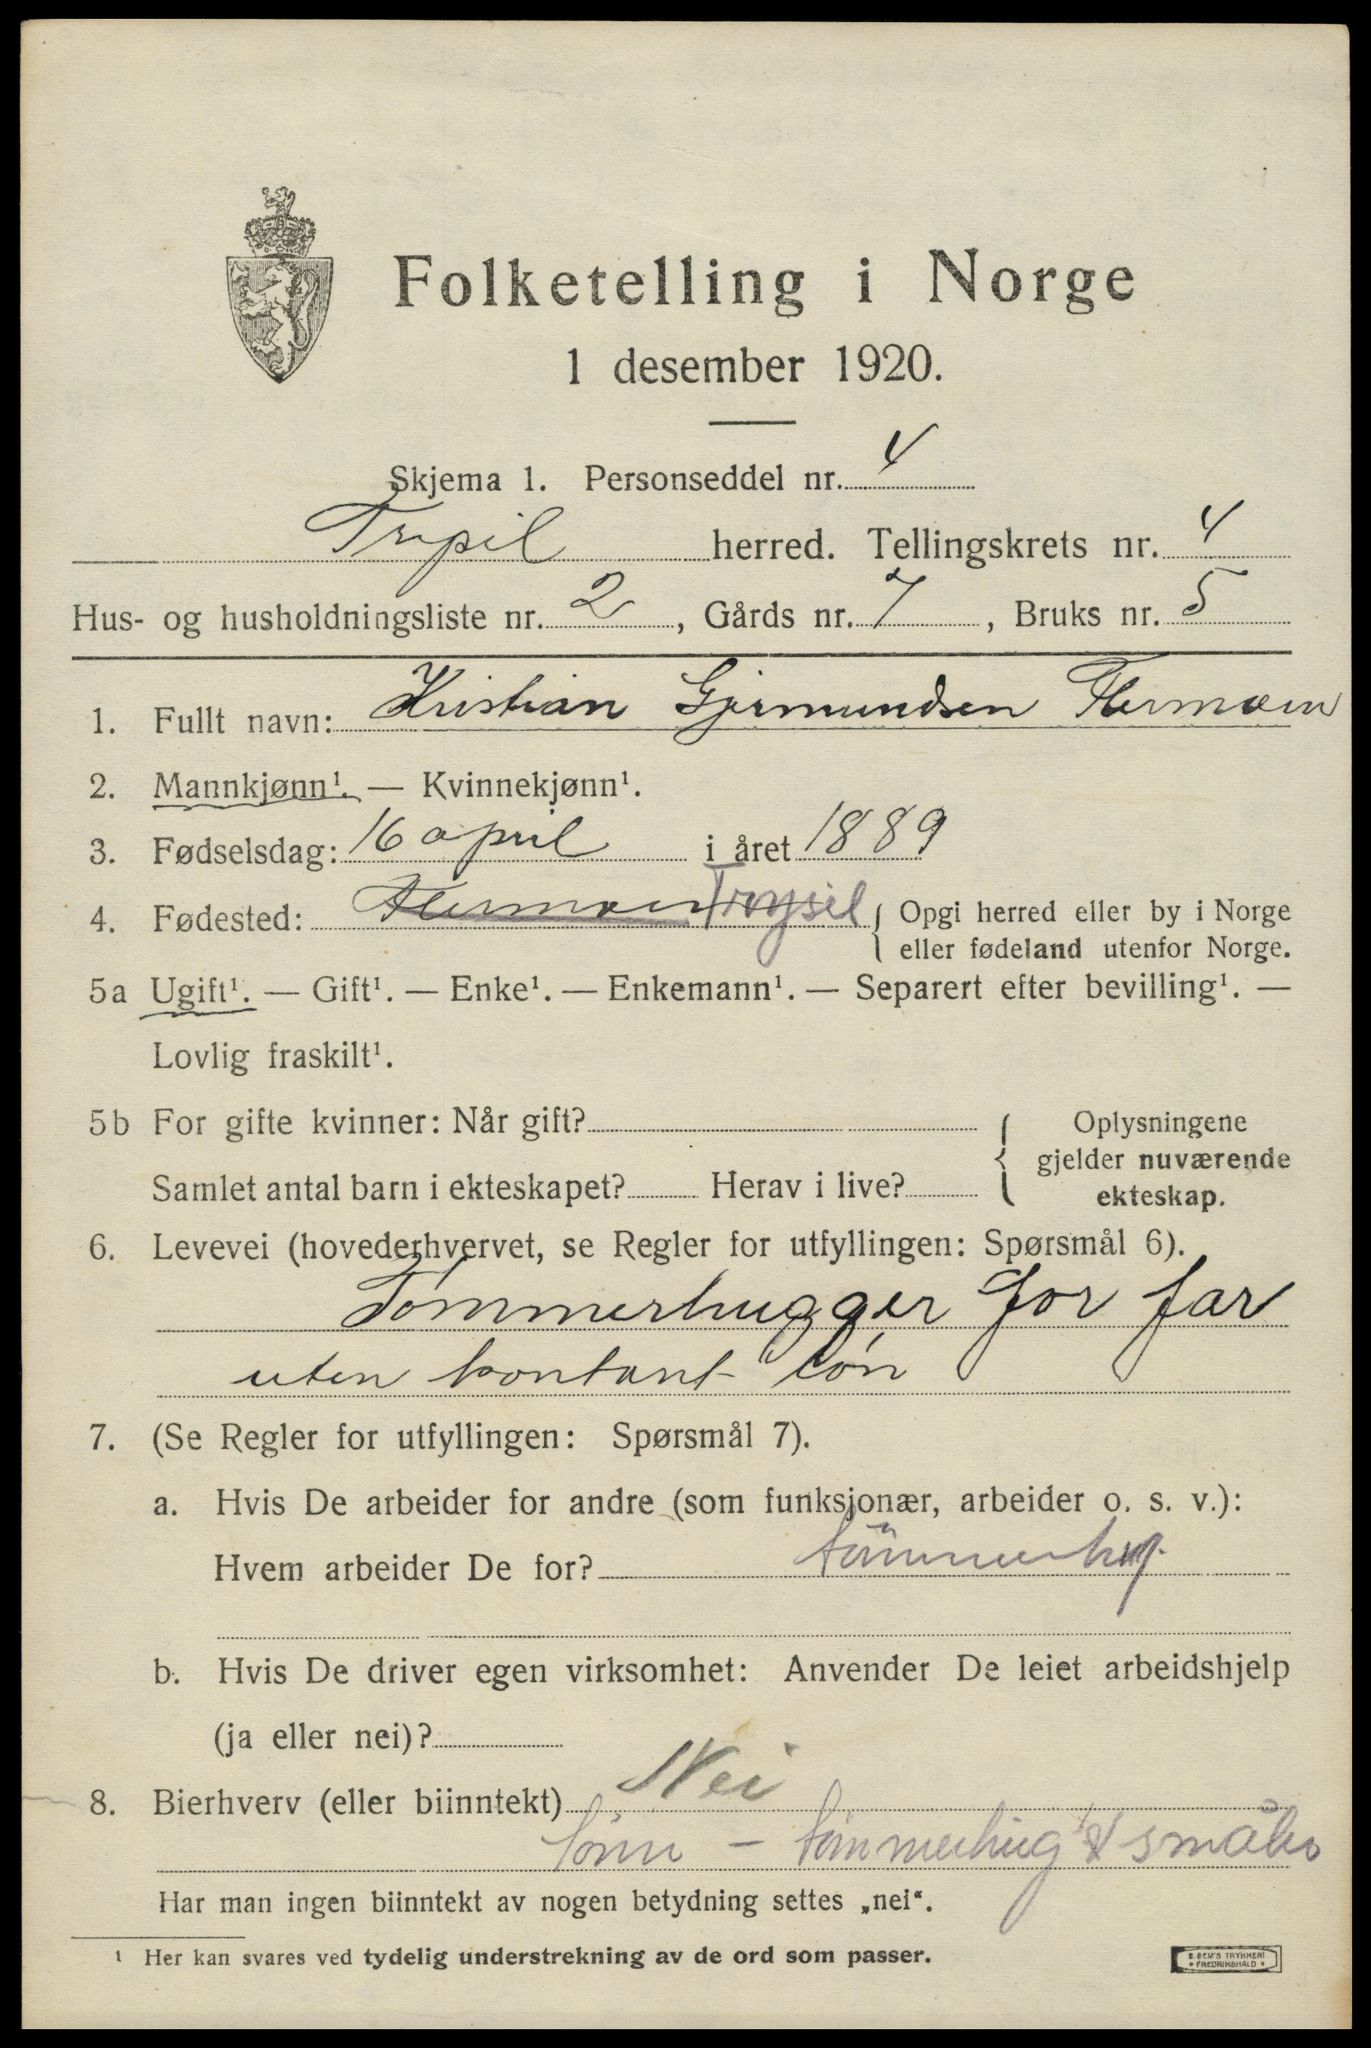 Folketelling i Norge
1 desember 1920.
Skjema 1. Personseddel nr. 4
Trysil herred. Tellingskrets nr. 4
Hus- og husholdningsliste nr. 2, Gårds nr. 7, Bruks nr. 5
1. Fullt navn: Kristian Gjermundsen Flermoen
2. Mannkjønn¹. — Kvinnekjønn¹.
3. Fødselsdag: 16 april i året 1889
4. Fødested: Flermoen Trysil { Opgi herred eller by i Norge
eller fødeland utenfor Norge.
5a Ugift¹. — Gift¹. — Enke¹. — Enkemann¹. — Separert efter bevilling¹. —
Lovlig fraskilt¹.
5b For gifte kvinner: Når gift? { Oplysningene
gjelder nuværende
Samlet antal barn i ekteskapet? Herav i live? ekteskap.
6. Levevei (hovederhvervet, se Regler for utfyllingen: Spørsmål 6).
Tømmerhugger for far
uten kontant løn
7. (Se Regler for utfyllingen: Spørsmål 7).
a. Hvis De arbeider for andre (som funksjonær, arbeider o. s. v.):
Hvem arbeider De for? tømmerhug.
b. Hvis De driver egen virksomhet: Anvender De leiet arbeidshjelp
(ja eller nei)?
8. Bierhverv (eller biinntekt) Nei
sønn – tømmerhug
Har man ingen biinntekt av nogen betydning settes „nei“.
¹ Her kan svares ved tydelig understrekning av de ord som passer.
E. SEM'S TRYKKERI
• FREDRIKSHALD •